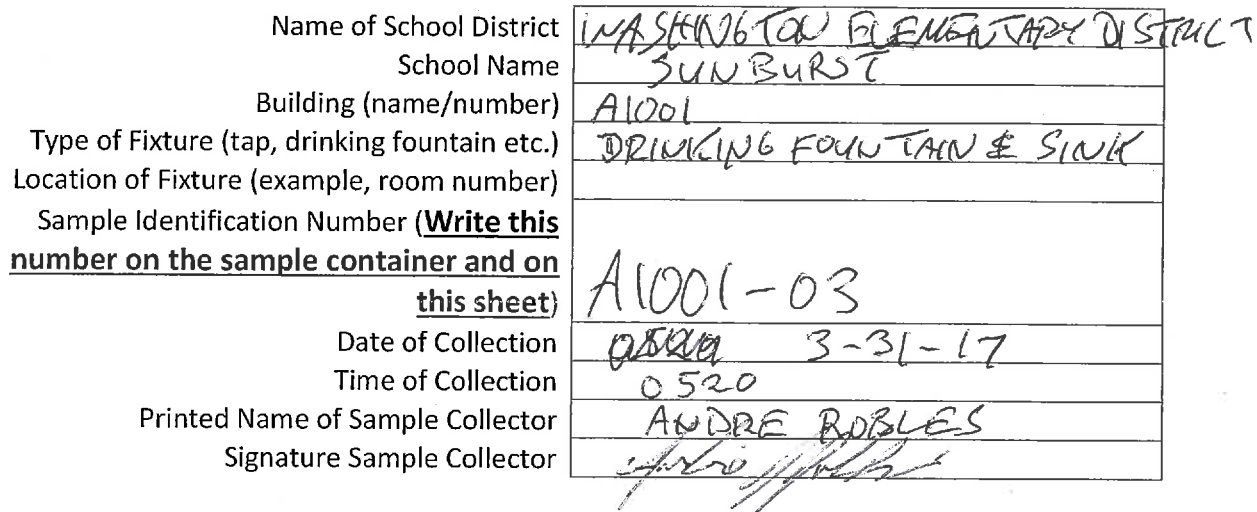 Name of School District WASHINGTON ELEMENTARY DISTRICT
School Name SUNBURST
Building (name/number) A1001
Type of Fixture (tap, drinking fountain etc.) DRINKING FOUNTAIN & SINK
Location of Fixture (example, room number)
Sample Identification Number (Write this
number on the sample container and on
this sheet) A1001-03
Date of Collection 3-31-17
Time of Collection 0520
Printed Name of Sample Collector ANDRE ROBLES
Signature Sample Collector